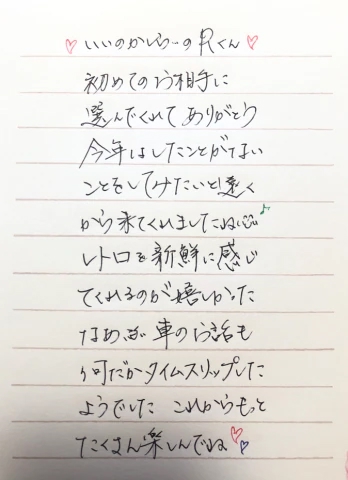 ♡いいのかしら…のRくん♡
初めてのお相手に
選んでくれてありがとう
今年はしたことがない
ことをしてみたいと遠く
から来てくれましたね♪
レトロを新鮮に感じ
てくれるのが嬉しかった
なめ 車のお話も
何だかタイムスリップした
ようでした これからもっと
たくさん楽しんでね♡♡